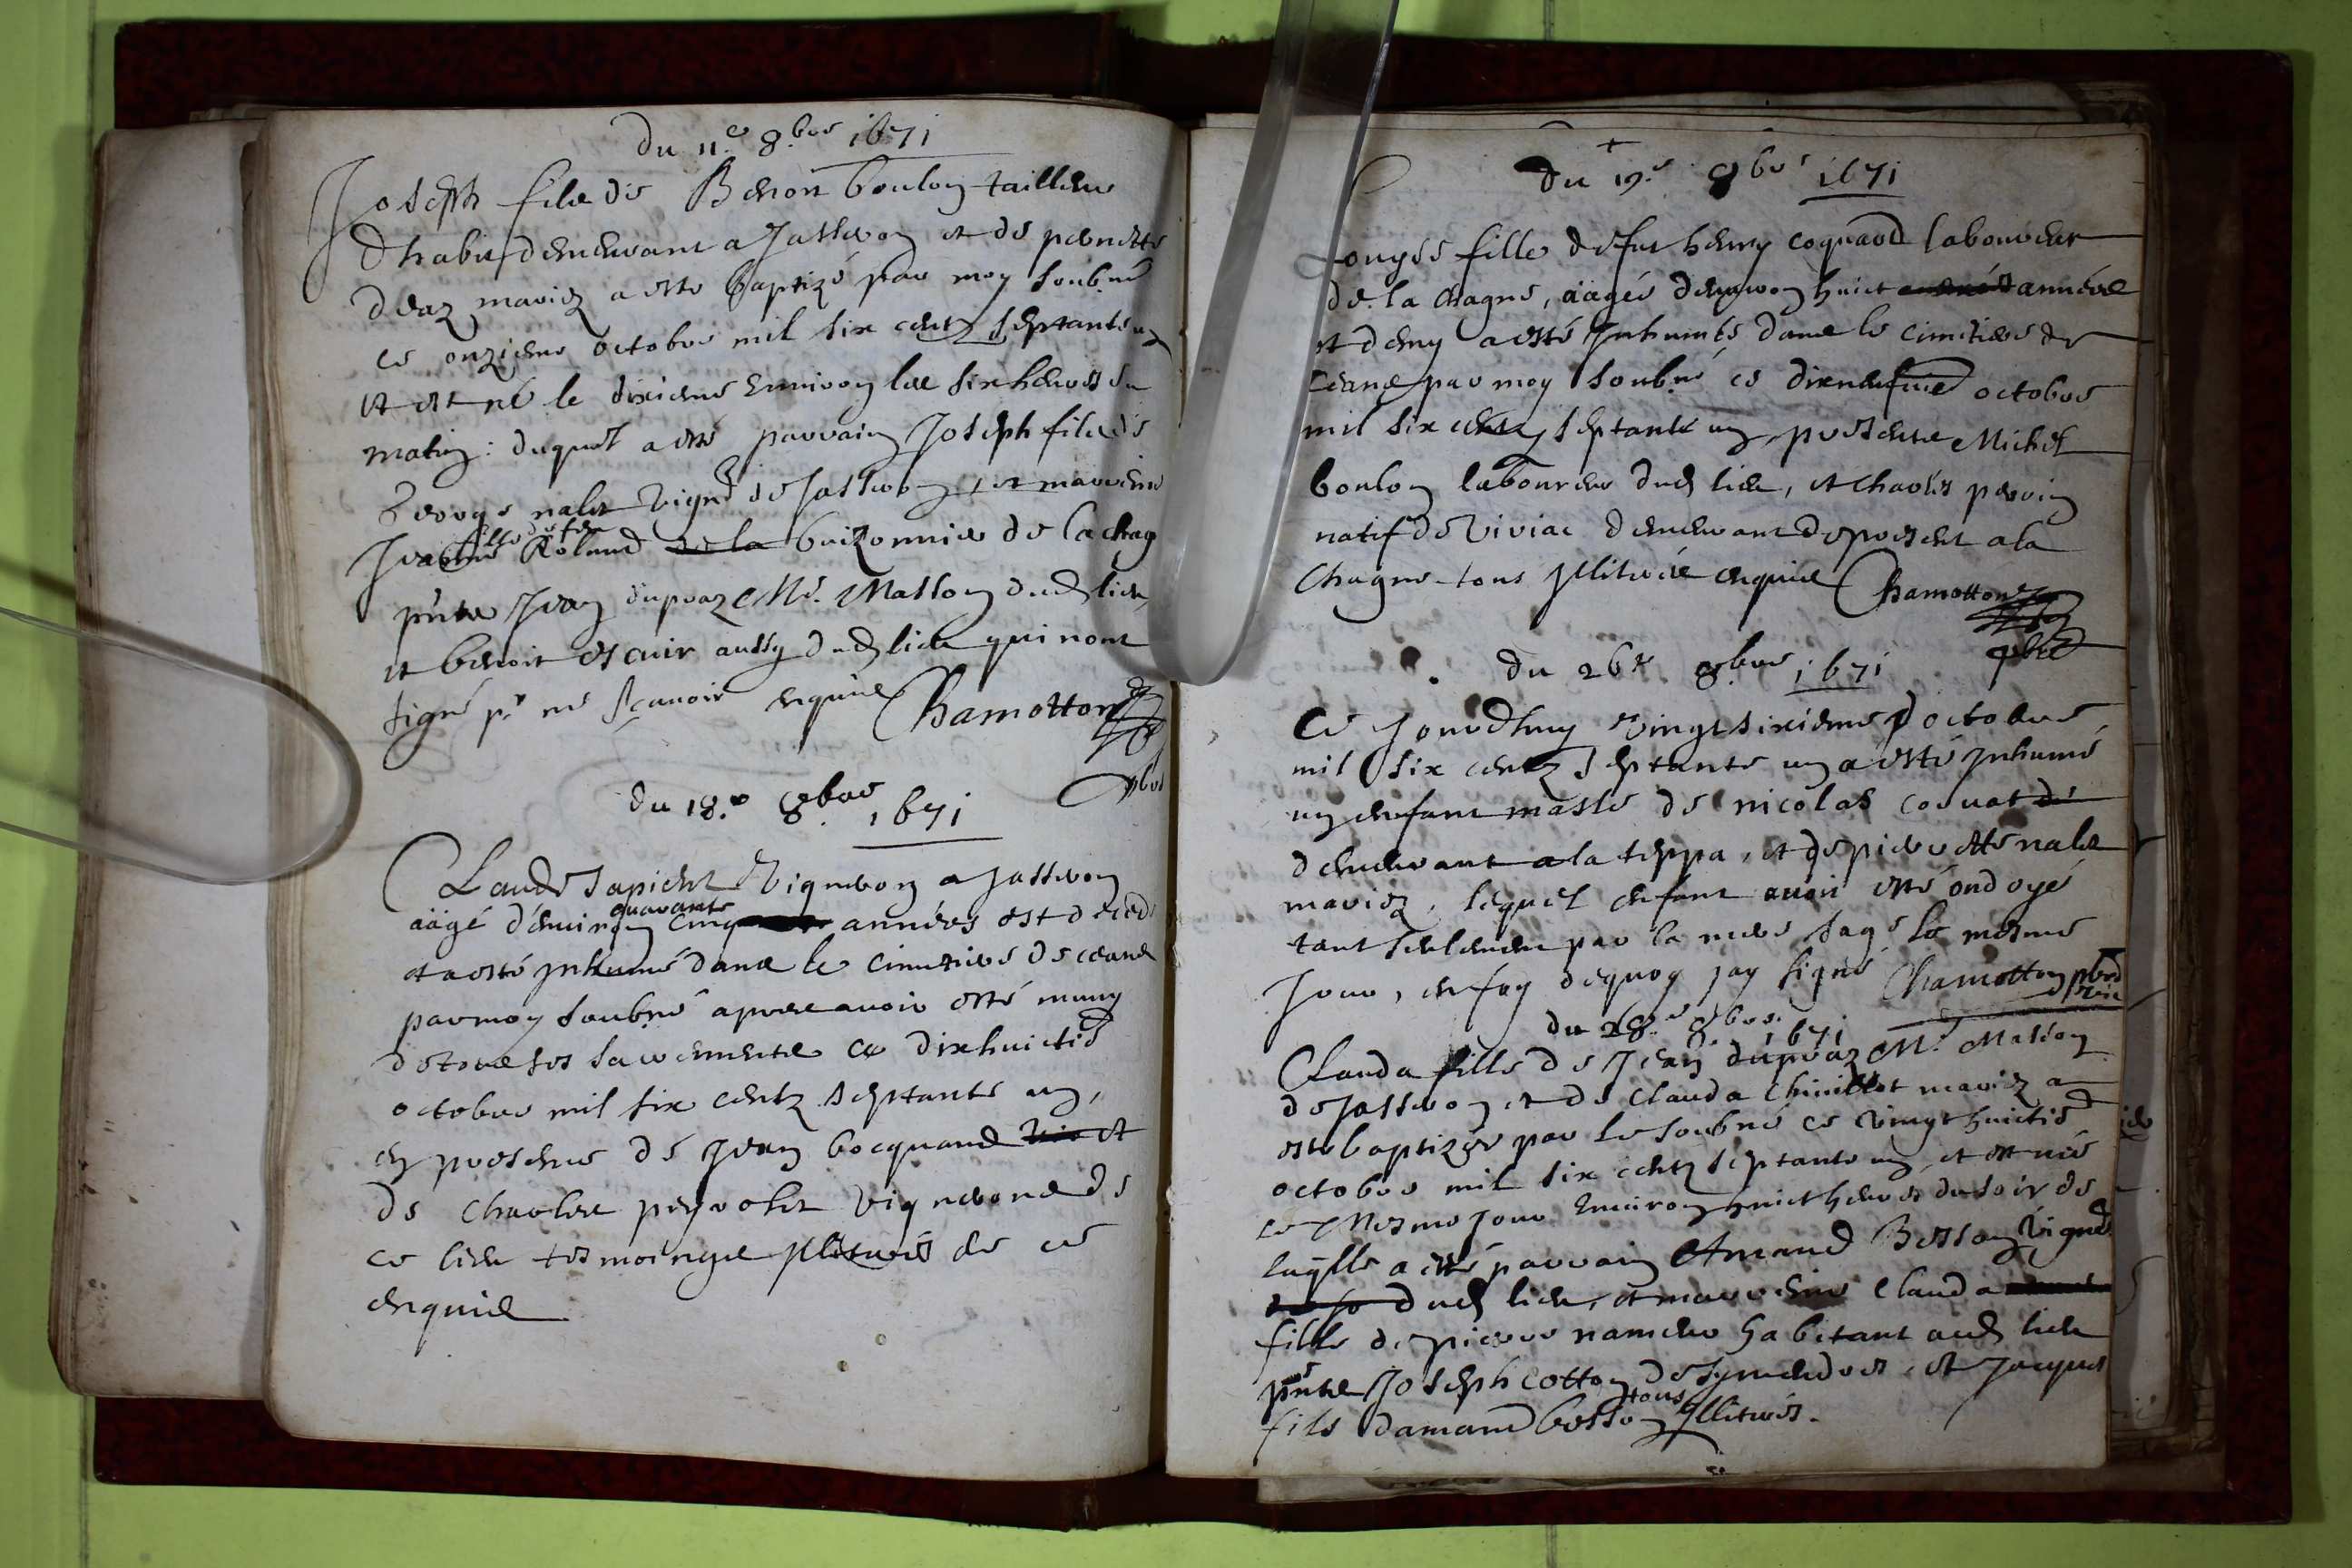 Du 11e 8bre 1671
Joseph filz de Benoit boulon tailleur
d'habit demeurant a Jasseron et de pernette
mariez a esté baptizé par moy soubné
ce onzieme octobre mil six centz septante un
et est né le dixieme environ les six heures du
matin: duquel a esté parrain Joseph filz de
George nalet vigno de Jasseron, et marreine
fille de feu
Jeanne Roland de la buizonnire de la chag
pnts Jean dupraz Me Masson dud lieu,
et benoit escuir aussy dud lieu qui nont
signé pr ne sçavoir enquis Chamotton
pbre
du 18e 8bre 1671
Claude Tapichet vigneron a Jasseron
quarante
aägé d'environ cinq années est decedé
et a esté inhumé dans le cimitiere de ceans
par moy soubné apres avoir esté muny
de tous ses sacrements ce dixhuictie
octobre mil six centz septante un,
en presence de Jean bocquand et
de Charles vignerons de
ce lieu tesmoings illitrés de ce
enquis
Du 19e 8bre 1671
Louyse fille de fut henry coquard laboureur
de la chagne, aägée denviron huict années
et demy a esté inhumée dans le cimitiere de
ceans par moy soubné ce dixneufvie octobre
mil six centz septante un, presents Michel
boulon laboureur dud lieu, et Charles perrin
natif de Viriac demeurant de present a la
Chagne tous illitrés enquis Chamotton
pbre
du 26e 8bre 1671
Ce jourdhuy vingt sixieme d octobre
mil six centz septante un a esté inhumé
un enfant masle de nicolas corvat de
demeurant a la teppa, et de pierrette nalet
mariez, lequel enfant avoit esté ondoyé
tant seulement par la mere sage le mesme
jour, en foy dequoy jay signé Chamotton pbre
vic
du 28e 8bre 1671
Clauda fille de Jean dupraz Me Masson
de Jasseron et de Clauda Chivillot mariez a
esté baptizée par le soubné ce vingt huictie
octobre mil six centz septante un, et est née
le Mesme jour environ huict heures du soir de
laqlle a esté parrain Amand Besson vigno
dud lieu, et marreine Clauda
fille de pierre nameur habitant aud lieu
pnts Joseph cotton et Jacques
tous
fils damand besson Illitrés.